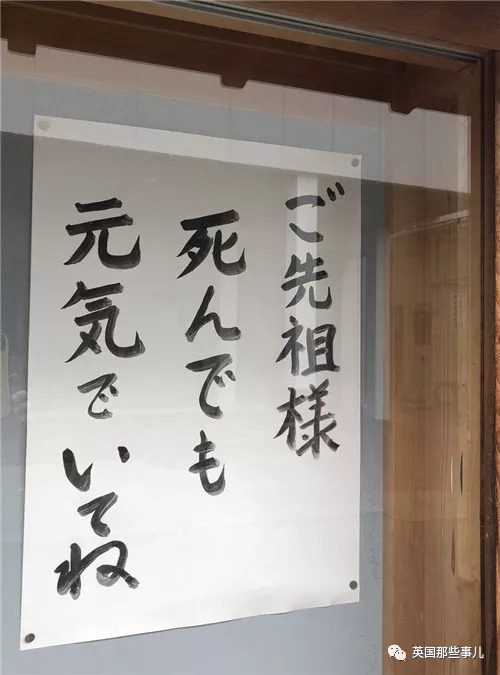 ご先祖様
死んでも
元気でいてね
英国那些事儿